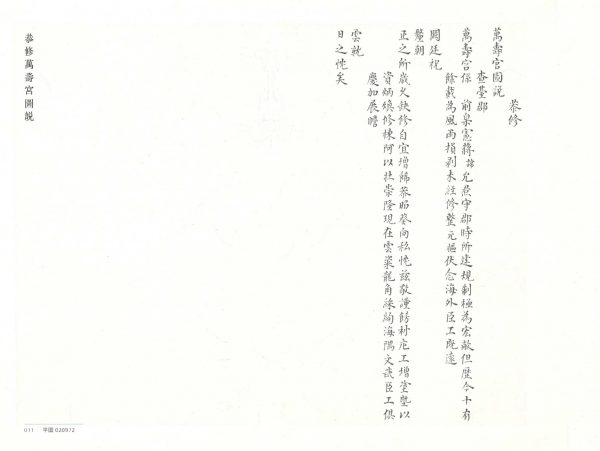 恭修
萬壽宮圖說
查臺郡
萬壽宮係 前臬憲蔣諱允焄守郡時所建規制極為宏敞但歷今十有
餘載為風雨損剥未經修整元樞伏念海外臣工既遠
闕廷祝
釐朝
正之所歲久缺修自宜增飾恭昭葵向私忱兹敬謹飭材庀工增塗塈以
資炳煥修棟阿以扶崇隆現在雲楶龍角綵絢海隅文武臣工俱
慶加展瞻
雲就
日之忱矣
恭修萬壽宮圖說
011 平圖 020972